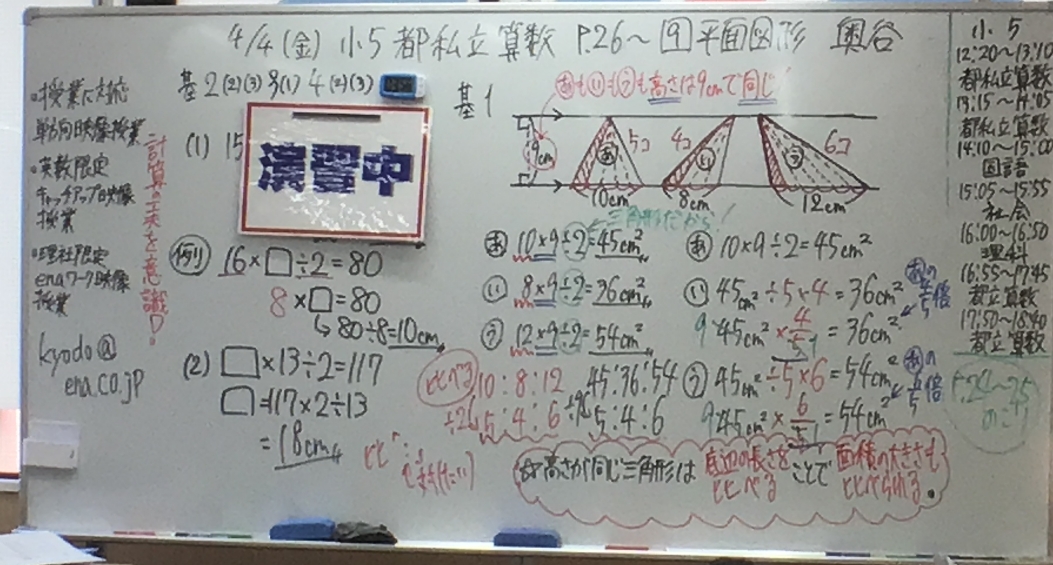 4/4(金) 小5 都私立算数 P.26〜 9 平面図形 奥谷
・授業に対応
単方向映像授業
・算数限定
キャッチアップ映像
授業
・理社限定
enaワーク映像
授業
kyodo@
ena.co.jp
計算の工夫を意識!
基2(2)(3) 3(1) 4(2)(3)
(1) 15
演習中
例 16×□÷2=80
8×□=80
↳80÷8=10cm
(2) □×13÷2=117
□=117×2÷13
=18cm
基1
あもいもうも高さは9cmで同じ
9cm
あ 5コ
4コ い
う 6コ
10cm 8cm 12cm
三角形だから!
あ 10×9÷2=45cm²
い 8×9÷2=36cm²
う 12×9÷2=54cm²
比べる 10:8:12 45:36:54
5:4:6 5:4:6
比「:」
あ 10×9÷2=45cm²
い 45cm²÷5×4=36cm²
9 45cm²×4/5=36cm²
あの4/5倍
う 45cm²÷5×6=54cm²
9 45cm²×6/5=54cm²
あの6/5倍
☆高さが同じ三角形は底辺の長さを比べることで面積の大きさも比べられる。
小5
12:20〜13:10
都私立算数
13:15〜14:05
都私立算数
14:10〜15:00
国語
15:05〜15:55
社会
16:00〜16:50
理科
16:55〜17:45
都立算数
17:50〜18:40
都立算数
P.24〜25
のこり